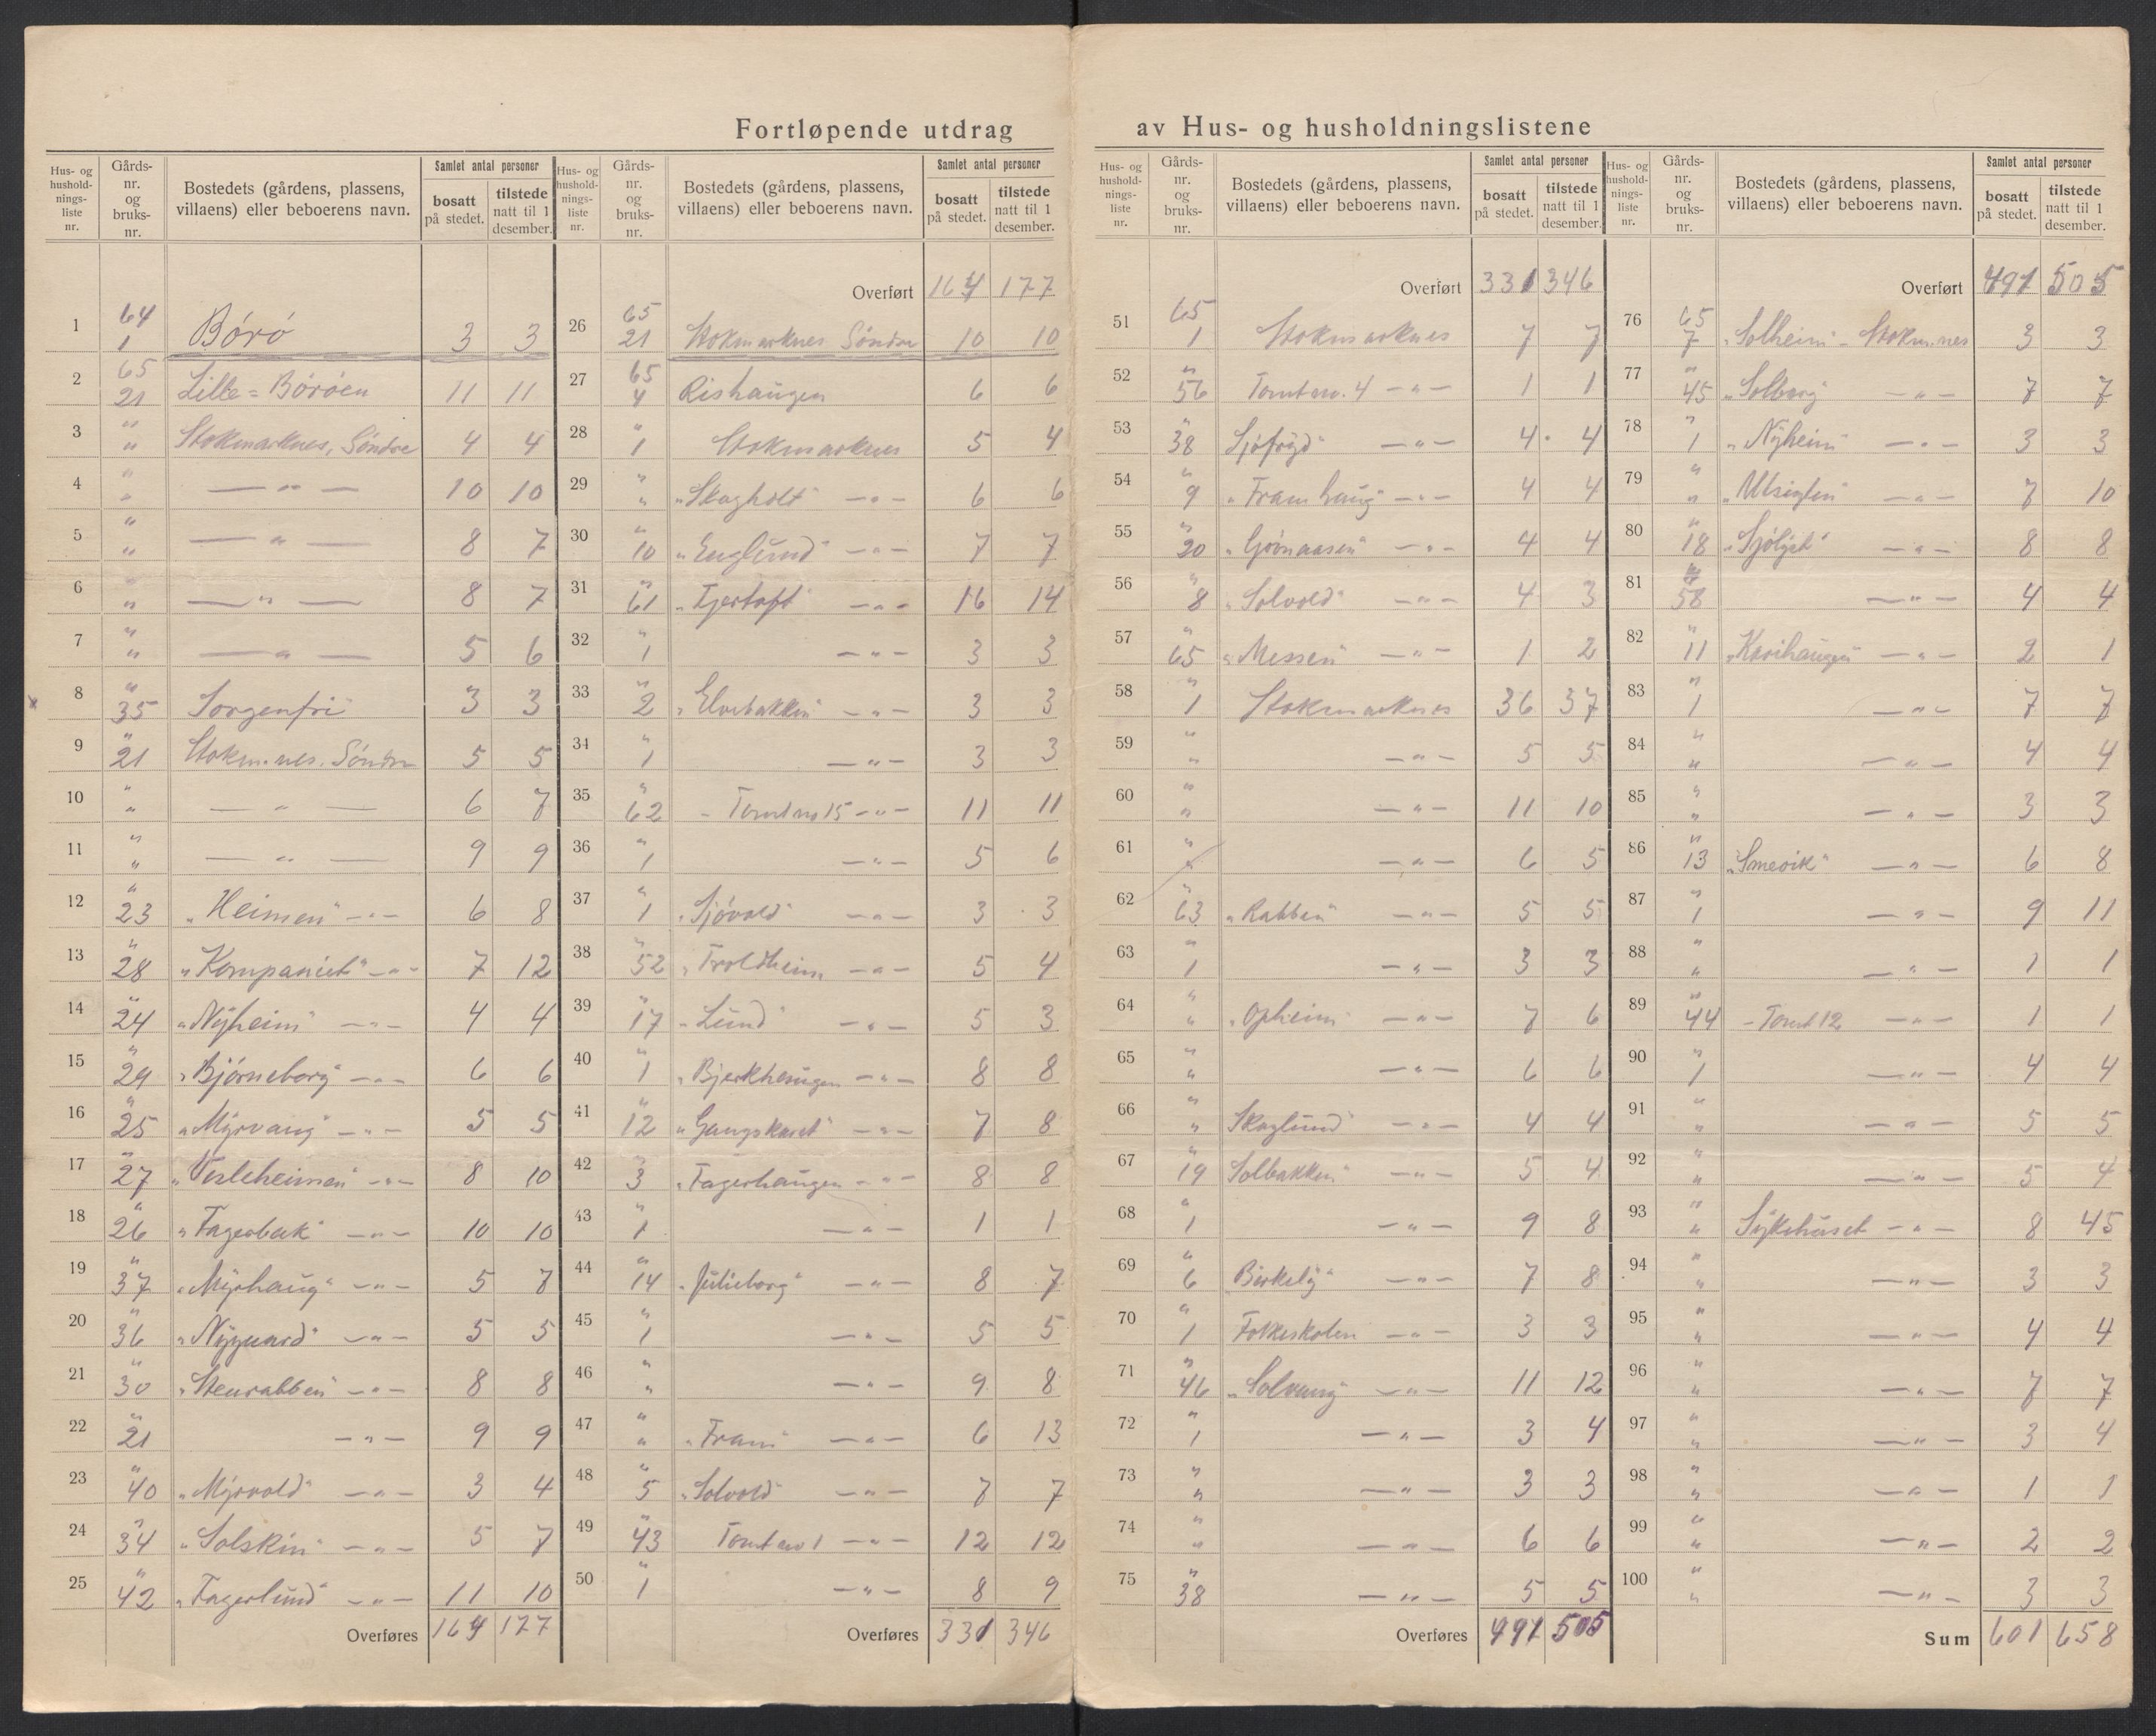 Fortløpende utdrag av Hus- og husholdningslistene
Hus- og husholdnings-liste nr. | Gårds-nr. og bruks-nr. | Bostedets (gårdens, plassens, villaens) eller beboerens navn. | Samlet antal personer | bosatt på stedet. | tilstede natt til 1 desember.
1 64 1 Börö 3 3
2 65 21 Lille=Böröen 11 11
3 " " Stokmarknes, Söndre 4 4
4 " " — " — 10 10
5 " " — " — 8 7
6 " " — " — 8 7
7 " " — " — 5 6
8 " 35 Sorgenfri 3 3
9 " 21 Stokm.nes. Söndre 5 5
10 " " — " — 6 7
11 " " — " — 9 9
12 " 23 "Heimen" — " — 6 8
13 " 28 "Kompaniet" — " — 7 12
14 " 24 "Nyheim" — " — 4 4
15 " 29 "Bjørneborg" — " — 6 6
16 " 25 "Myrvang" — " — 5 5
17 " 27 "Vesleheimen" — " — 8 10
18 " 26 "Fagerbak" — " — 10 10
19 " 37 "Myrhaug" — " — 5 7
20 " 36 "Nygaard" — " — 5 5
21 " 30 "Stenrabben" — " — 8 8
22 " 21 — " — 9 9
23 " 40 "Myrvold" — " — 3 4
24 " 34 "Solskin" — " — 5 7
25 " 42 "Fagerlund" — " — 11 10
Overføres 164 177
Hus- og husholdnings-liste nr. | Gårds-nr. og bruks-nr. | Bostedets (gårdens, plassens, villaens) eller beboerens navn. | Samlet antal personer | bosatt på stedet. | tilstede natt til 1 desember.
Overført 164 177
26 65 21 Stokmarknes Söndre 10 10
27 65 4 Rishaugen 6 6
28 " 1 Stokmarknes 5 4
29 " " "Skogholt" — " — 6 6
30 " 10 "Englund" — " — 7 7
31 " 61 "Tjertoft" — " — 16 14
32 " 1 — " — 3 3
33 " 2 "Elvebakken" — " — 3 3
34 " 1 — " — 3 3
35 " 62 - Tomt no 15 — " — 11 11
36 " 1 — " — 5 6
37 " 1 "Sjøvold" — " — 3 3
38 " 52 "Troldheim — " — 5 4
39 " 17 "Lund" — " — 5 3
40 " 1 "Bjerkhaugen — " — 8 8
41 " 12 "Gangskaret" — " — 7 8
42 " 3 "Fagerhaugen — " — 8 8
43 " 1 — " — 1 1
44 " 14 "Julieborg" — " — 8 7
45 " 1 — " — 5 5
46 " " — " — 9 8
47 " " "Fram" — " — 6 13
48 " 5 "Solvold" — " — 7 7
49 " 43 Tomt no 1 — " — 12 12
50 " 1 — " — 8 9
Overføres 331 346
Hus- og husholdnings-liste nr. | Gårds-nr. og bruks-nr. | Bostedets (gårdens, plassens, villaens) eller beboerens navn. | Samlet antal personer | bosatt på stedet. | tilstede natt til 1 desember.
Overført 331 346
51 65 1 Stokmarknes 7 7
52 " 56 Tomt no. 4 — " — 1 1
53 " 38 Sjöfryd" — " — 4 4
54 " 9 "Framhaug" — " — 4 4
55 " 20 "Grönaasen" — " — 4 4
56 " 8 "Solvold" — " — 4 3
57 " 65 "Messen" — " — 1 2
58 " 1 Stokmarknes 36 37
59 " " — " — 5 5
60 " " — " — 11 10
61 " " — " — 6 5
62 " 63 "Rabben" — " — 5 5
63 " 1 — " — 3 3
64 " " "Opheim — " — 7 6
65 " " — " — 6 6
66 " " Skoglund" — " — 4 4
67 " 19 Solbakken" — " — 5 4
68 " 1 — " — 9 8
69 " 6 Birkely" — " — 7 8
70 " 1 Folkeskolen — " — 3 3
71 " 46 "Solvang" — " — 11 12
72 " 1 — " — 3 4
73 " " — " — 3 3
74 " " — " — 6 6
75 " 38 — " — 5 5
Overføres 491 505
Hus- og husholdnings-liste nr. | Gårds-nr. og bruks-nr. | Bostedets (gårdens, plassens, villaens) eller beboerens navn. | Samlet antal personer | bosatt på stedet. | tilstede natt til 1 desember.
Overført 491 505
76 65 7 "Solheim" - Stokm.nes 3 3
77 " 45 "Solborg" — " — 7 7
78 " 1 "Nyheim" — " — 3 3
79 " " "Utsigten" — " — 7 10
80 " 18 "Sjölyst" — " — 8 8
81 58 — " — 4 4
82 " 11 "Kvithaugen" — " — 2 1
83 " 1 — " — 7 7
84 " " — " — 4 4
85 " " — " — 3 3
86 " 13 "Smevik" — " — 6 8
87 " 1 — " — 9 11
88 " " — " — 1 1
89 " 44 - Tomt 12 — " — 1 1
90 " 1 — " — 4 4
91 " " — " — 5 5
92 " " — " — 5 4
93 " " Sykehuset — " — 8 45
94 " " — " — 3 3
95 " " — " — 4 4
96 " " — " — 7 7
97 " " — " — 3 4
98 " " — " — 1 1
99 " " — " — 2 2
100 " " — " — 3 3
Sum 601 658